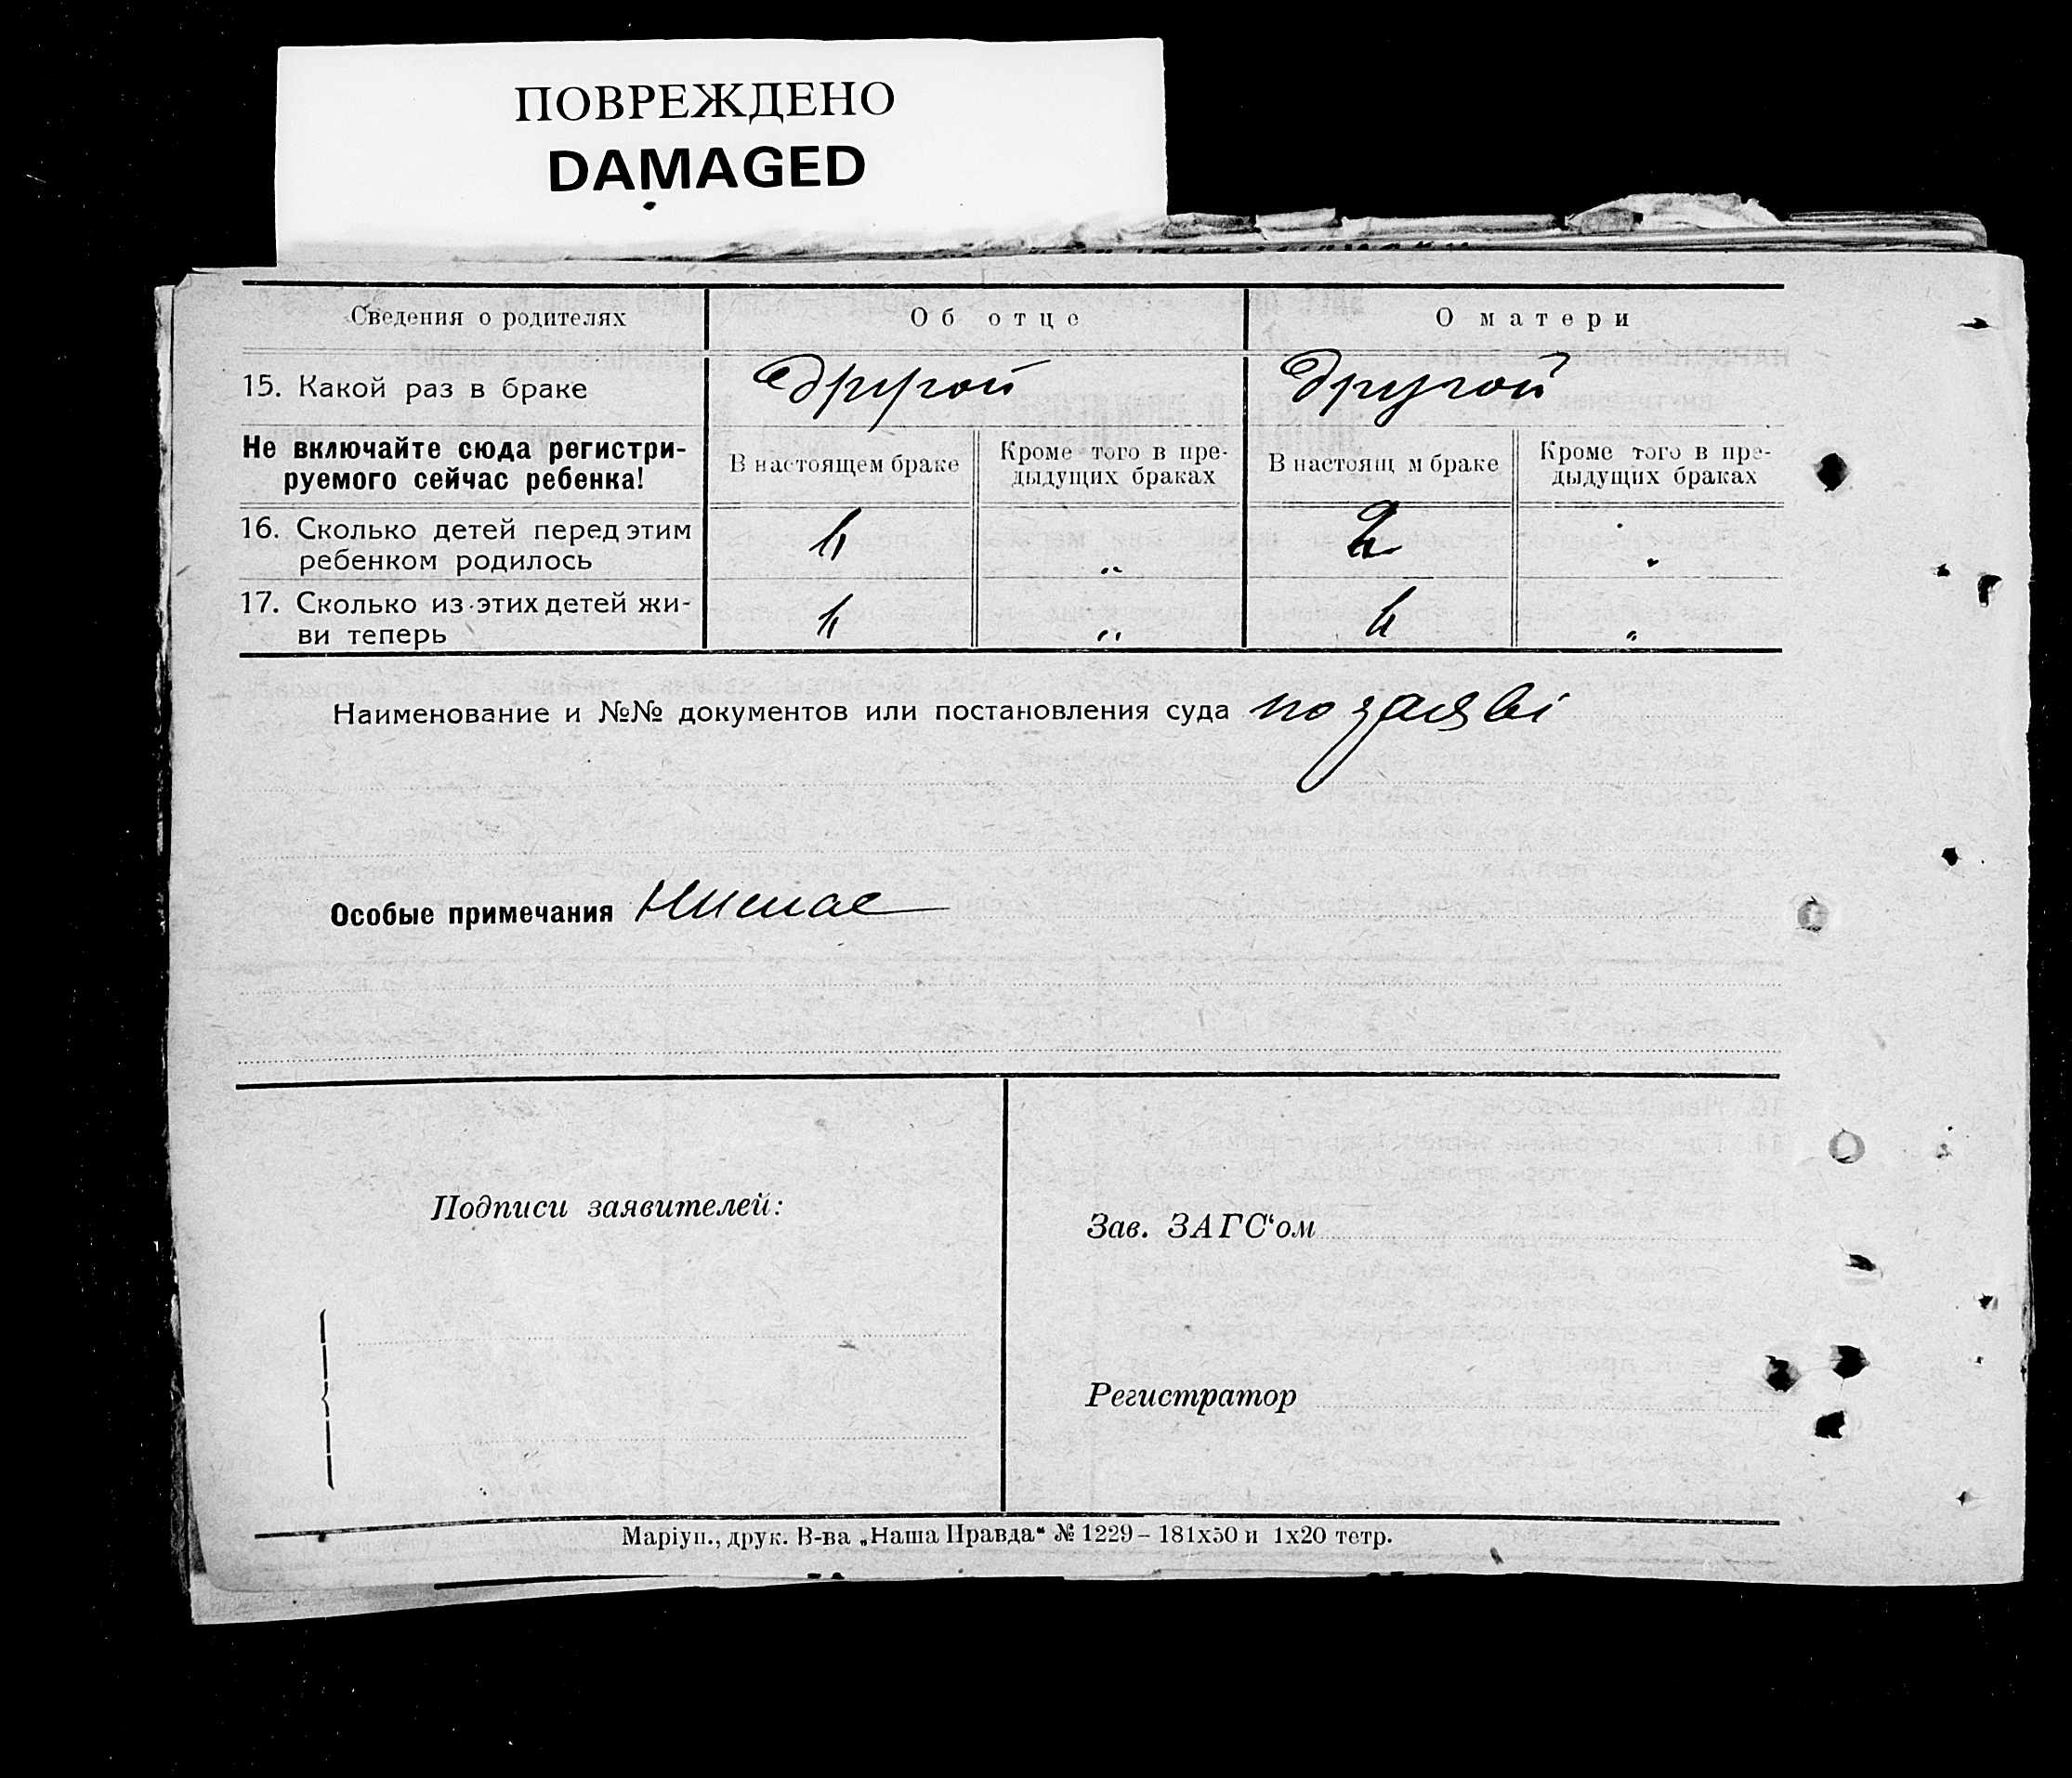 ПОВРЕЖДЕНО
DAMAGED
Сведения о родителях Об отце О матери
15. Какой раз в браке другой другой
Не включайте сюда регистри-
руемого сейчас ребенка!
В настоящем браке
Кроме того в пре-
дыдущих браках
В настоящ м браке
Кроме того в пре-
дыдущих браках
16. Сколько детей перед этим
ребенком родилось
4 „ „
17. Сколько из этих детей жи-
ви теперь
4 „ 4 „
Наименование и №№ документов или постановления суда по заяві
Особые примечания Нимае
Подписи заявителей:
Зав. ЗАГС‘ом
Регистратор
Маріуп., друк. В-ва „Наша Правда“ № 1229 – 181х50 и 1х20 тетр.